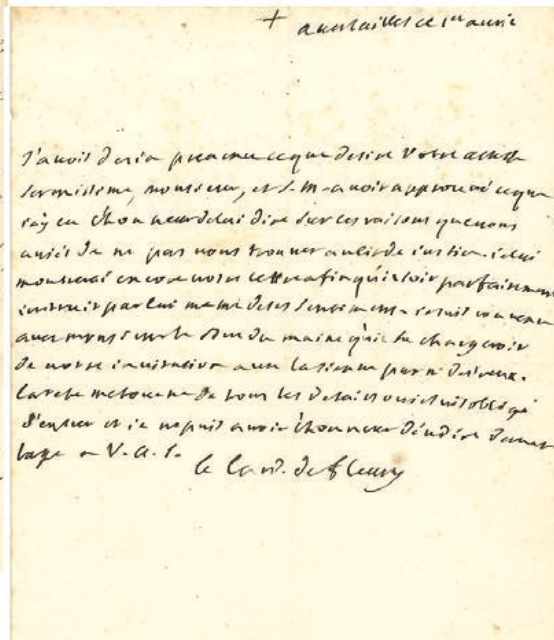 + a versailles ce 1er avril
J'avois deja prevenu ce que desire Votre altesse
serenissime, monsieur, et S. M. avoit approuvé ce que
j'ay eu l'honneur de lui dire sur les raisons que vous
aviés de ne pas vous trouver au lit de justice. je lui
montrerai encore votre lettre afin qu'il soit parfaitement
instruit par lui meme de ses sentimens. je suis convenu
avec monsieur le Duc du maine qu'il se chargeroit
de votre invitation avec la sienne par
la teste me tourne de tous les details ou je suis obligé
d'entrer et je ne puis avoir l'honneur d'en dire davan
tage a V. A. S.
le Card. de fleury